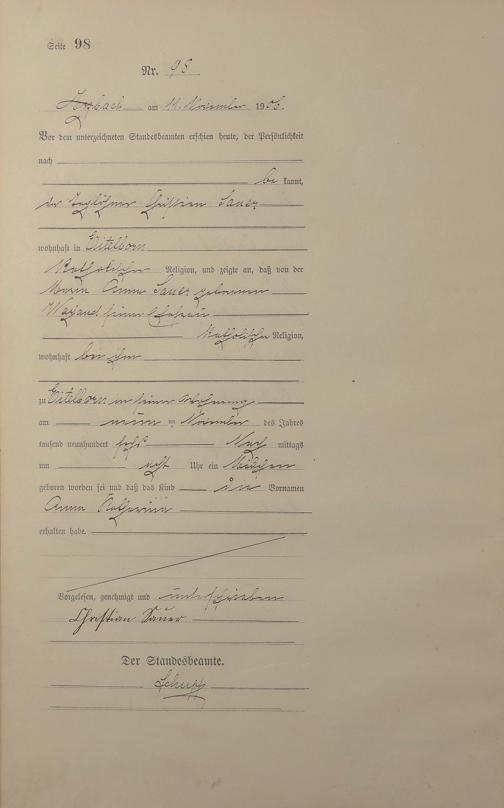 Seite 98
Nr. 98
Arzbach am 11. November 1906.
Vor dem unterzeichneten Standesbeamten erschien heute, der Persönlichkeit
nach
be kannt,
der Taglöhner Christian Sauer
wohnhaft in Eitelborn
Katholischer Religion, und zeigte an, daß von der
Maria Anna Sauer geborenen
Weyand seiner Ehefrau
Katholischer Religion,
wohnhaft bei ihm
zu Eitelborn in seiner Wohnung
am neun ten November des Jahres
tausend neunhundert sechs Nach mittags
um acht Uhr ein Mädchen
geboren worden sei und daß das Kind die Vornamen
Anna Katharina
erhalten habe.
Vorgelesen, genehmigt und unterschrieben
Christian Sauer
Der Standesbeamte.